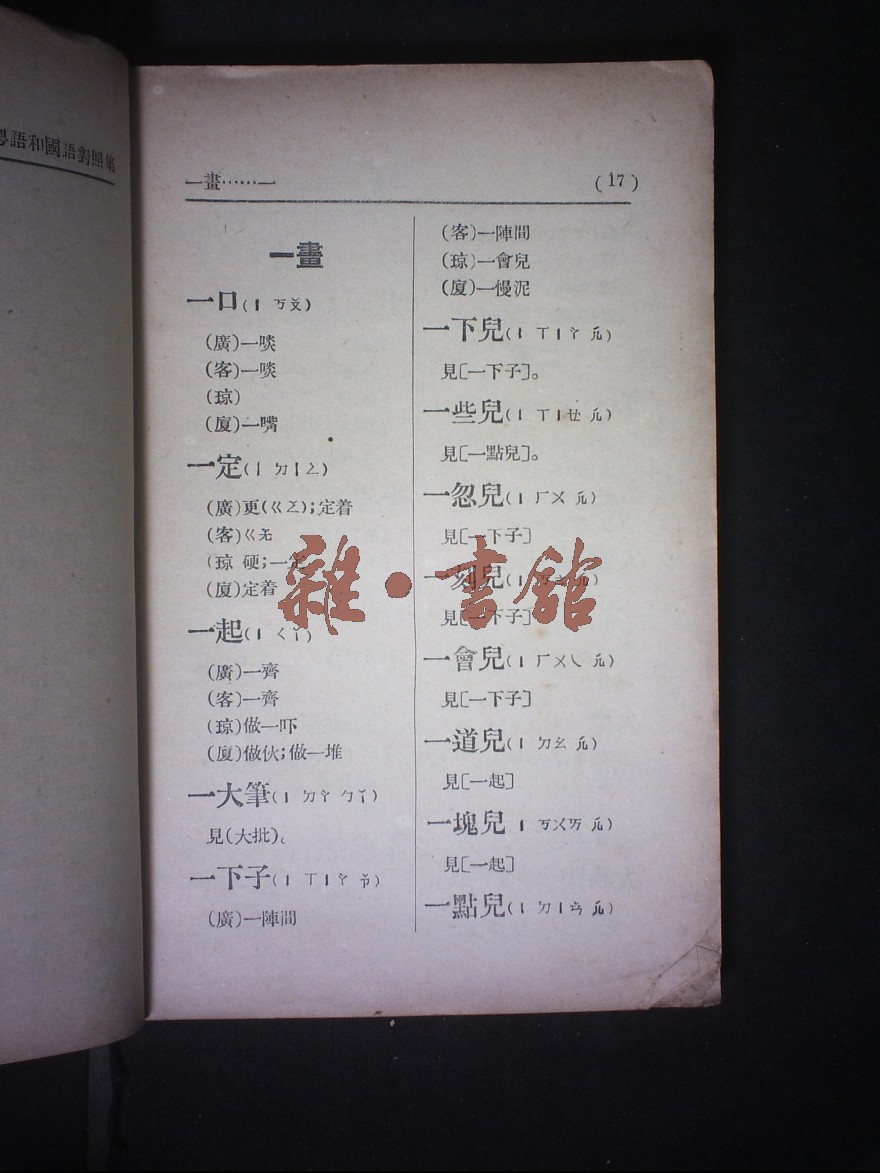 粵語和國語對照集
一畫……一
(17)
一畫
一口(ㄧ ㄎㄡˇ)
(廣)一啖
(客)一啖
(琼)
(廈)一嘴
一定(ㄧ ㄉㄧㄥ)
(廣)更(ㄍㄥ);定着
(客)ㄍㄤ
(琼 硬;一定
(廈)定着
一起(ㄧ ㄑㄧˇ)
(廣)一齊
(客)一齊
(琼)做一吓
(廈)做伙;做一堆
一大筆(ㄧ ㄉㄚ ㄅㄧˇ)
見(大批)。
一下子(ㄧ ㄒㄧㄚ ㄗˇ)
(廣)一陣間
(客)一陣間
(琼)一會兒
(廈)一慢泥
一下兒(ㄧ ㄒㄧㄚ ㄦ)
見[一下子]。
一些兒(ㄧ ㄒㄧㄝ ㄦ)
見[一點兒]。
一忽兒(ㄧ ㄏㄨ ㄦ)
見[一下子]
一刻兒(ㄧ ㄦ)
見[一下子]
一會兒(ㄧ ㄏㄨㄟ ㄦ)
見[一下子]
一道兒(ㄧ ㄉㄠ ㄦ)
見[一起]
一塊兒 ㄧ ㄎㄨㄞ ㄦ)
見[一起]
一點兒(ㄧ ㄉㄧㄢ ㄦ)
雜·書館